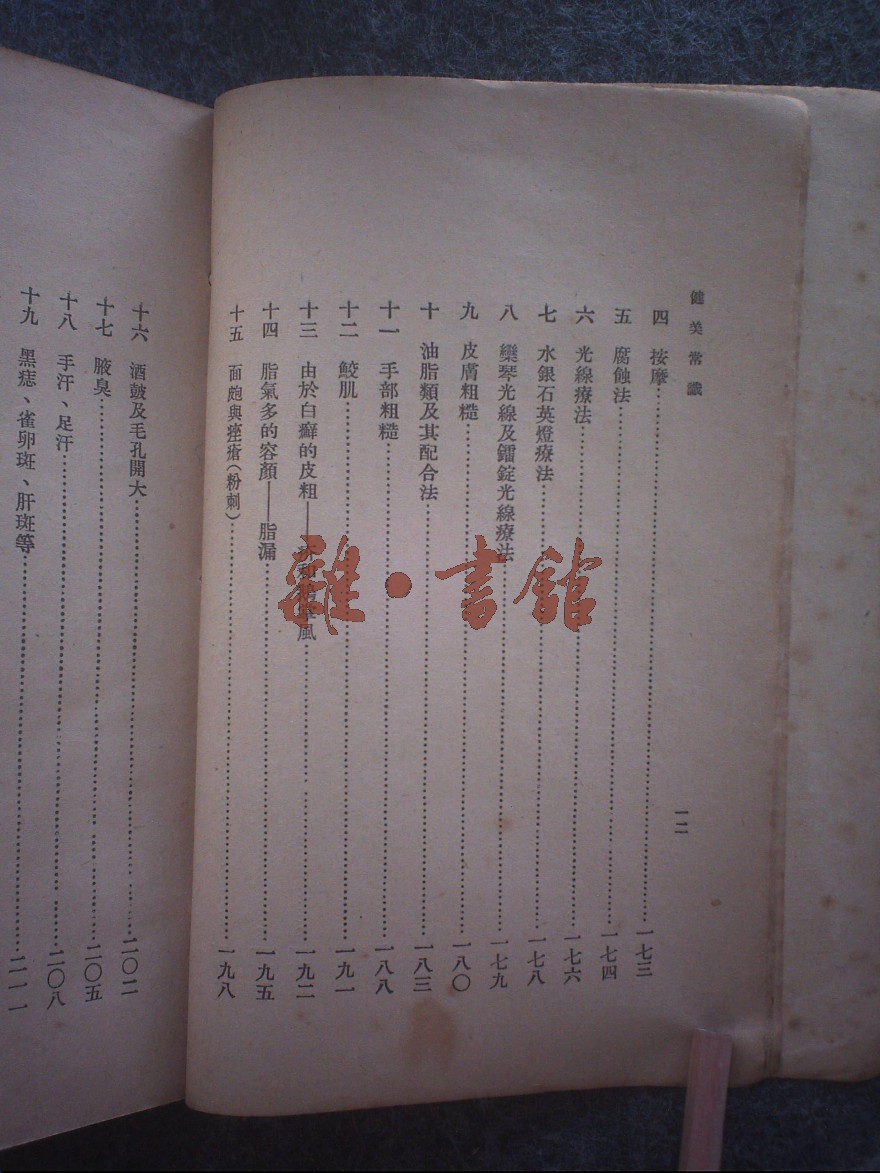 健美常識
一二
四 按摩……一七三
五 腐蝕法……一七四
六 光線療法……一七六
七 水銀石英燈療法……一七八
八 欒琴光線及鐳錠光線療法……一七九
九 皮膚粗糙……一八〇
十 油脂類及其配合法……一八三
十一 手部粗糙……一八八
十二 鮫肌……一九一
十三 由於白癬的皮粗——風……一九二
十四 脂氣多的容顏——脂漏……一九五
十五 面皰與痤瘡(粉刺)……一九八
十六 酒皶及毛孔開大……二〇二
十七 腋臭……二〇五
十八 手汗、足汗……二〇八
十九 黑痣、雀卵斑、肝斑等……二一一
雜·書館